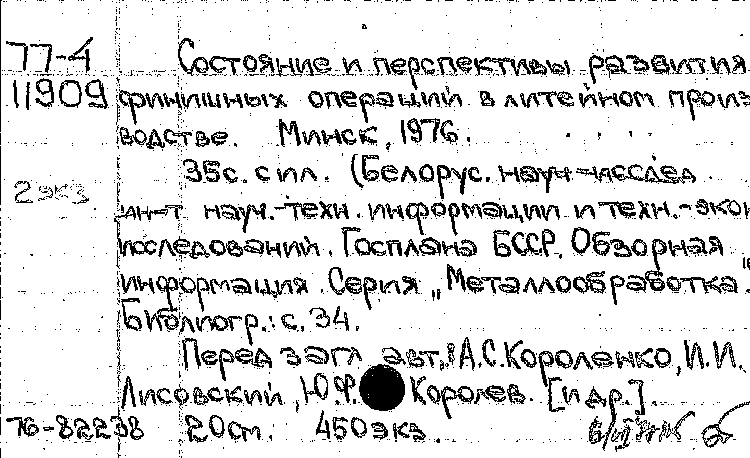 77-4 Состояние и перспективы развития
11909 финишных операций в литейном произ
водстве. Минск, 1976.
35с. с ил. (Белорус. науч-исслед
2 экз
ин-т науч.-техн. информации и техн.-экон
исследований. Госплана БССР. Обзорная
информация. Серия „Металлообработка."
Библиогр.: с. 34.
Перед загл. авт.: А.С. Короленко, И.И.
Лисовский, Ю.Ф. Королев. [и др.].
76-82238 20см. 450экз.